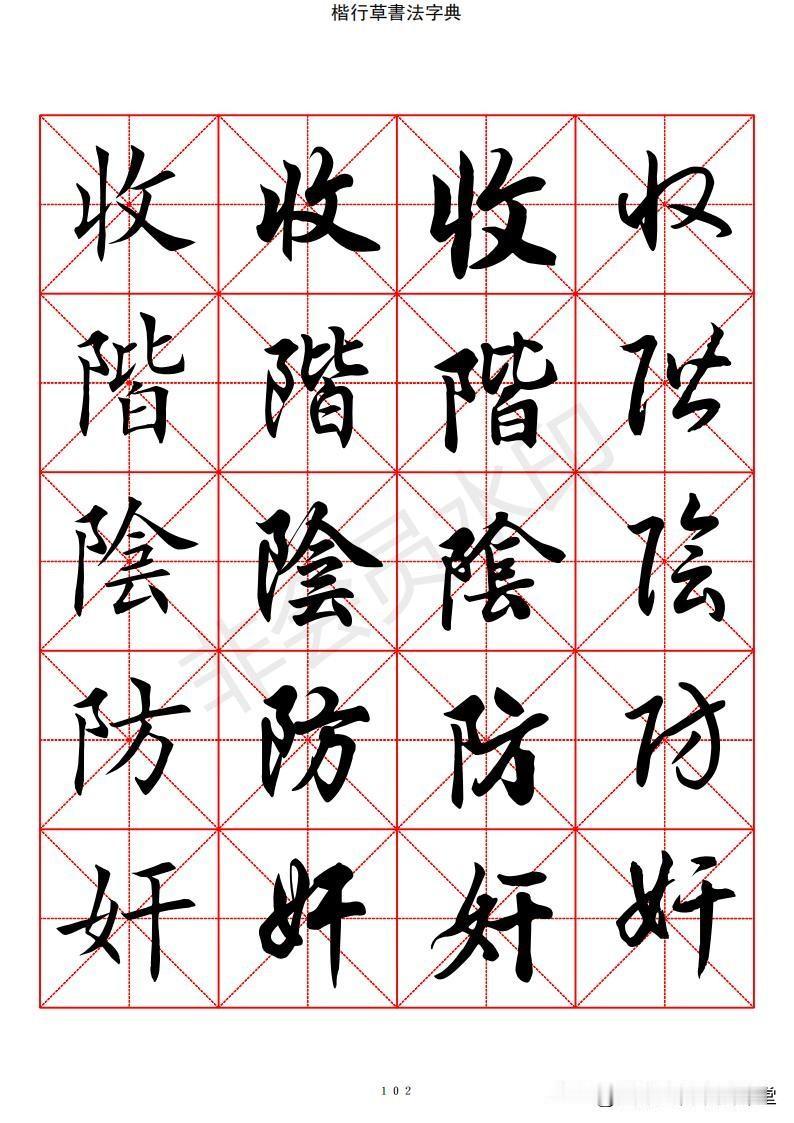 楷行草書法字典
收 收 收 收
階 階 階 階
陰 陰 陰 陰
防 防 防 防
奸 奸 奸 奸
非会员水印
102